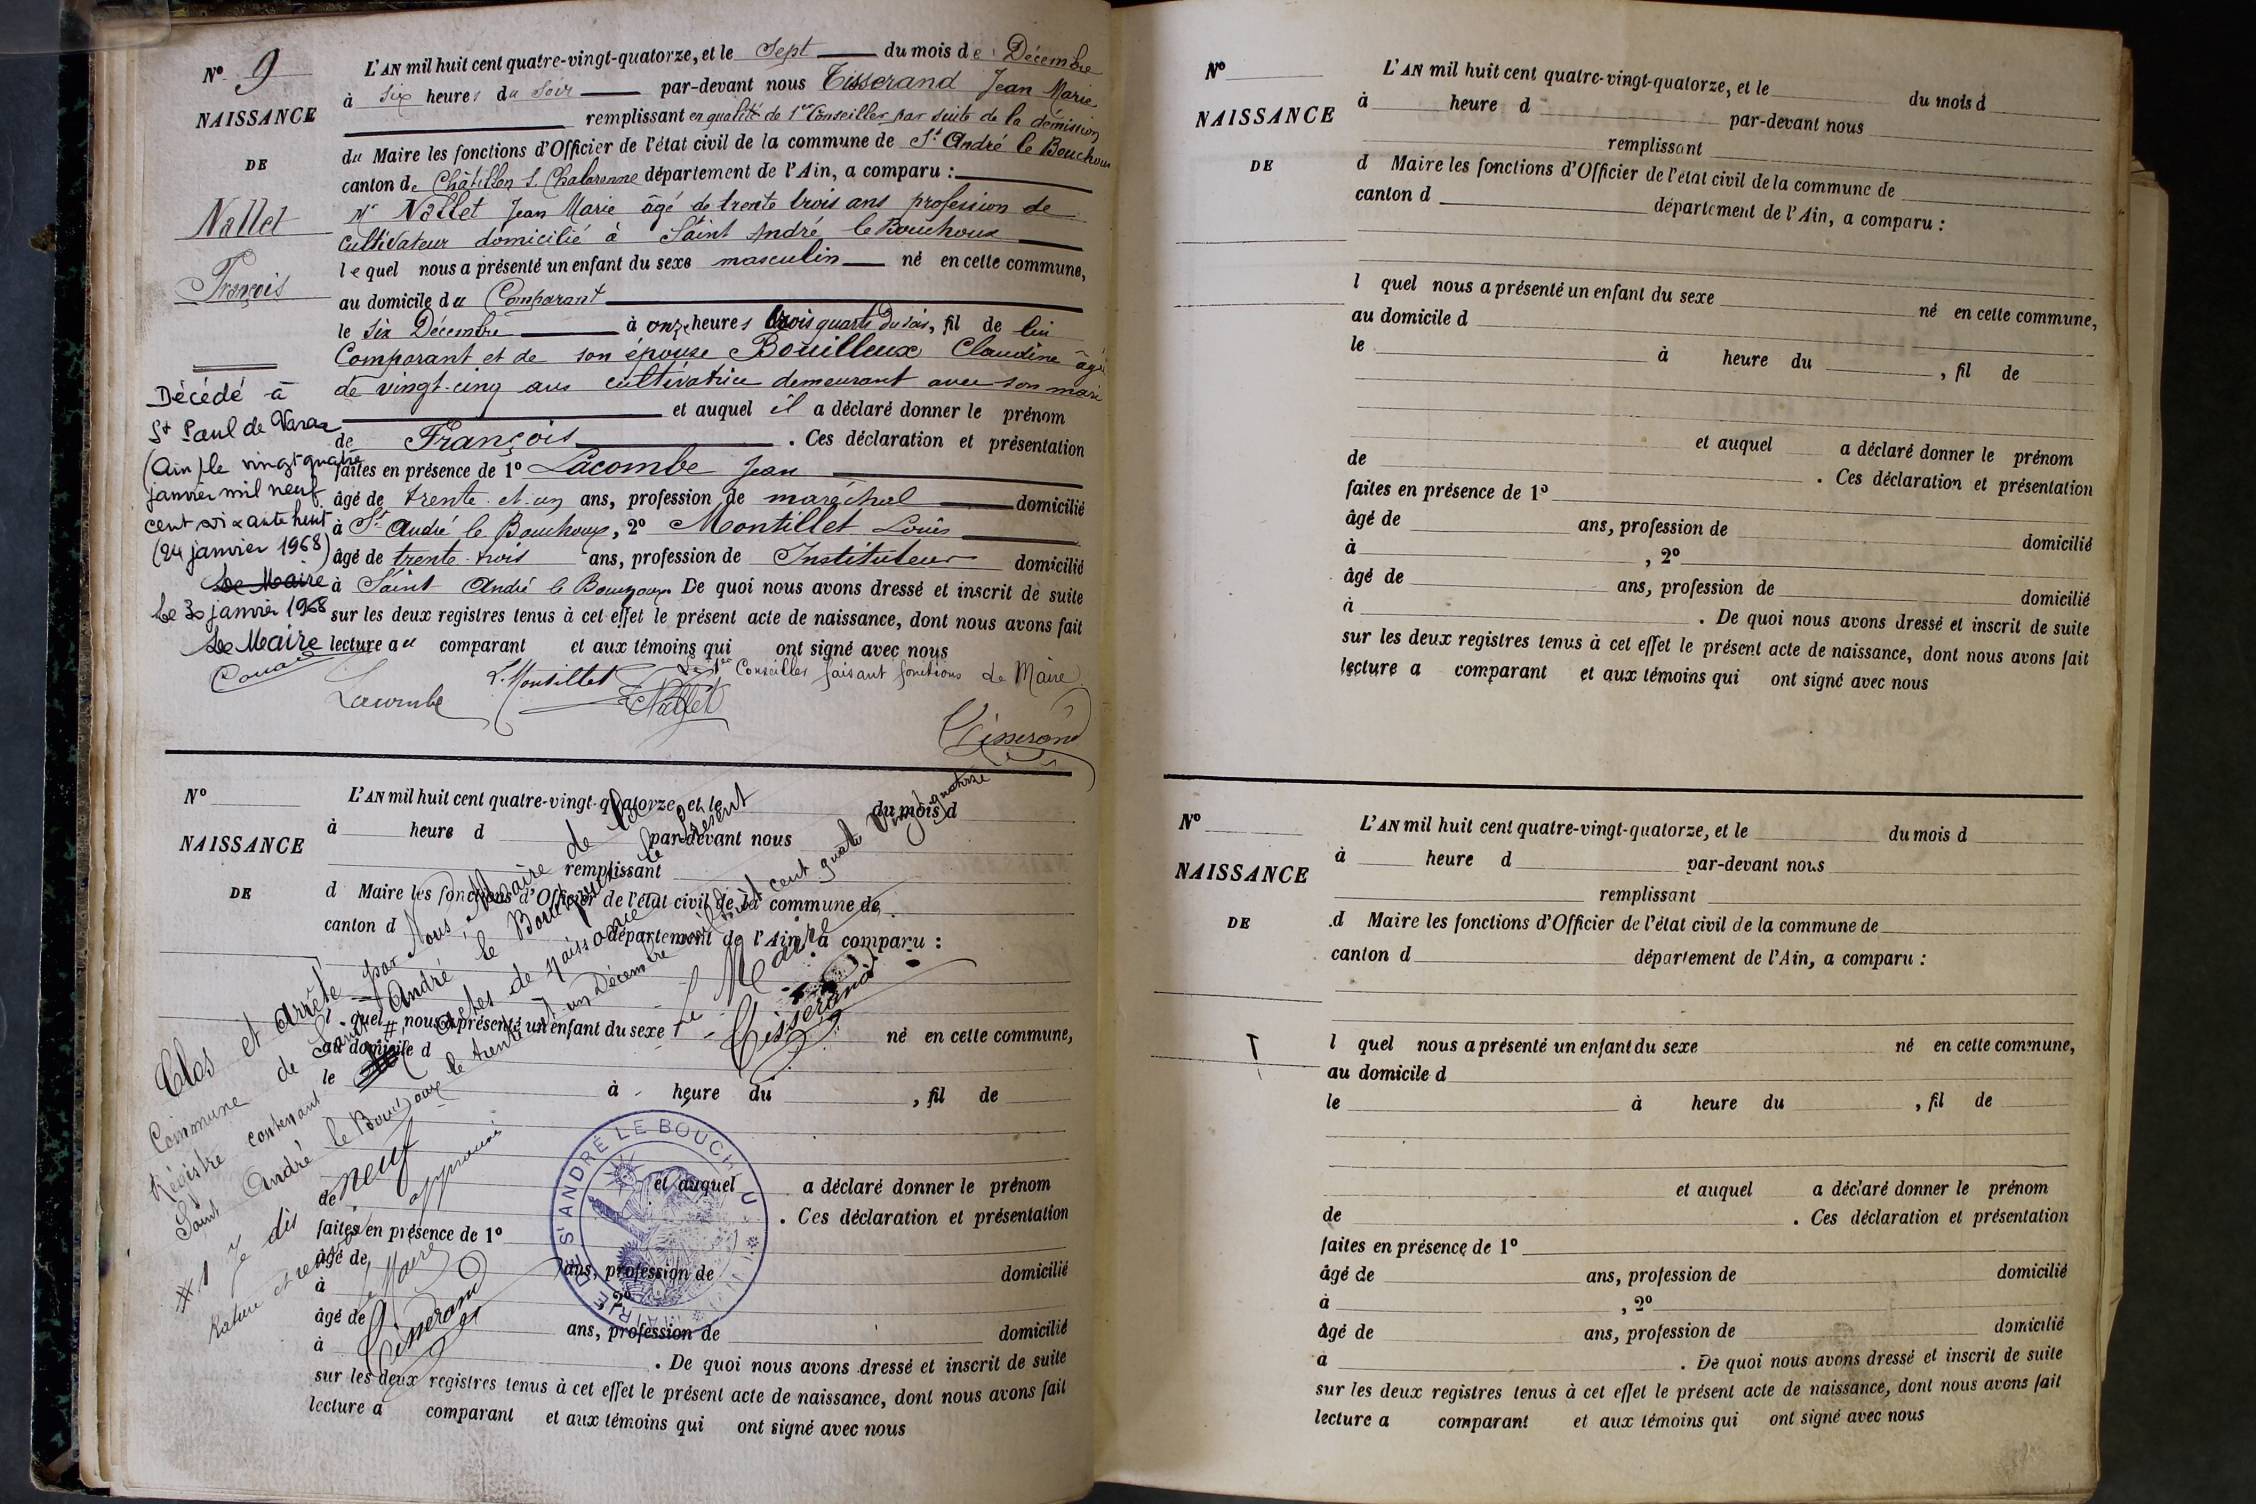 N° 9
NAISSANCE
DE
Nallet
François
L'AN mil huit cent quatre-vingt-quatorze, et le Sept du mois de Décembre
à six heures du soir par-devant nous Tisserand Jean Marie
remplissant en qualité de 1er Conseiller par suite de la démission
du Maire les fonctions d'Officier de l'état civil de la commune de St André le Bouchoux
canton de Châtillon s. Chalaronne département de l'Ain, a comparu :
Mr Nallet Jean Marie âgé de trente trois ans profession de
cultivateur domicilié à Saint André le Bouchoux
lequel nous a présenté un enfant du sexe masculin né en cette commune,
au domicile du Comparant
le six Décembre à onze heures trois quarts du soir, fil de lui
Comparant et de son épouse Bouilleux Claudine âgée
de vingt-cinq ans cultivatrice demeurant avec son mari
et auquel il a déclaré donner le prénom
de François . Ces déclaration et présentation
faites en présence de 1° Lacombe Jean
âgé de trente et un ans, profession de maréchal domicilié
à St André le Bouchoux, 2° Montillet Louis
âgé de trente-trois ans, profession de Instituteur domicilié
à Saint André le Bouchoux. De quoi nous avons dressé et inscrit de suite
sur les deux registres tenus à cet effet le présent acte de naissance, dont nous avons fait
lecture au comparant et aux témoins qui ont signé avec nous
Le 1er Conseiller faisant fonctions de Maire
Lacombe L. Montillet Nallet
Tisserand
Décédé à
St Paul de Varax
(Ain) le vingt-quatre
janvier mil neuf
cent soixante huit
(24 janvier 1968)
Le Maire
Le 30 janvier 1968
Le Maire
N°
NAISSANCE
DE
L'AN mil huit cent quatre-vingt-quatorze, et le du mois d
à heure d par-devant nous
remplissant
d Maire les fonctions d'Officier de l'état civil de la commune de
canton d département de l'Ain, a comparu :
l quel nous a présenté un enfant du sexe né en cette commune,
au domicile d
le à heure du , fil de
et auquel a déclaré donner le prénom
de . Ces déclaration et présentation
faites en présence de 1°
âgé de ans, profession de domicilié
à , 2°
âgé de ans, profession de domicilié
à . De quoi nous avons dressé et inscrit de suite
sur les deux registres tenus à cet effet le présent acte de naissance, dont nous avons fait
lecture a comparant et aux témoins qui ont signé avec nous
Clos et arrêté par Nous Maire de la
Commune de Saint André le Bouchoux le présent
Régistre contenant #1 actes de naissance
Saint André le Bouchoux le trente et un Décembre mil huit cent quatre vingt quatorze
Le Maire
Tisserand
#1 Je dis neuf
Rature et renvoi approuvé
Le Maire
Tisserand
MAIRIE DE ST ANDRÉ LE BOUCHOUX
N°
NAISSANCE
DE
L'AN mil huit cent quatre-vingt-quatorze, et le du mois d
à heure d par-devant nous
remplissant
d Maire les fonctions d'Officier de l'état civil de la commune de
canton d département de l'Ain, a comparu :
l quel nous a présenté un enfant du sexe né en cette commune,
au domicile d
le à heure du , fil de
et auquel a déclaré donner le prénom
de . Ces déclaration et présentation
faites en présence de 1°
âgé de ans, profession de domicilié
à , 2°
âgé de ans, profession de domicilié
à . De quoi nous avons dressé et inscrit de suite
sur les deux registres tenus à cet effet le présent acte de naissance, dont nous avons fait
lecture a comparant et aux témoins qui ont signé avec nous
N°
NAISSANCE
DE
L'AN mil huit cent quatre-vingt-quatorze, et le du mois d
à heure d par-devant nous
remplissant
d Maire les fonctions d'Officier de l'état civil de la commune de
canton d département de l'Ain, a comparu :
l quel nous a présenté un enfant du sexe né en cette commune,
au domicile d
le à heure du , fil de
et auquel a déclaré donner le prénom
de . Ces déclaration et présentation
faites en présence de 1°
âgé de ans, profession de domicilié
à , 2°
âgé de ans, profession de domicilié
à . De quoi nous avons dressé et inscrit de suite
sur les deux registres tenus à cet effet le présent acte de naissance, dont nous avons fait
lecture a comparant et aux témoins qui ont signé avec nous